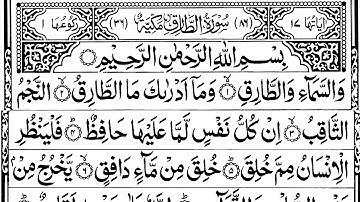 اٰيَاتُهَا ١٧ (٨٦) سُوْرَةُ الطَّارِقِ مَكِّيَّةٌ (٣٦) رُكُوْعُهَا ١
بِسْمِ اللّٰهِ الرَّحْمٰنِ الرَّحِيْمِ
وَالسَّمَآءِ وَالطَّارِقِ ۙ‏ ١ وَمَآ اَدْرٰىكَ مَا الطَّارِقُ ۙ‏ ٢ النَّجْمُ
الثَّاقِبُ ۙ‏ ٣ اِنْ كُلُّ نَفْسٍ لَّمَّا عَلَيْهَا حَافِظٌ ؕ‏ ٤ فَلْيَنْظُرِ
الْاِنْسَانُ مِمَّ خُلِقَ ؕ‏ ٥ خُلِقَ مِنْ مَّآءٍ دَافِقٍ ۙ‏ ٦ يَّخْرُجُ مِنْۢ